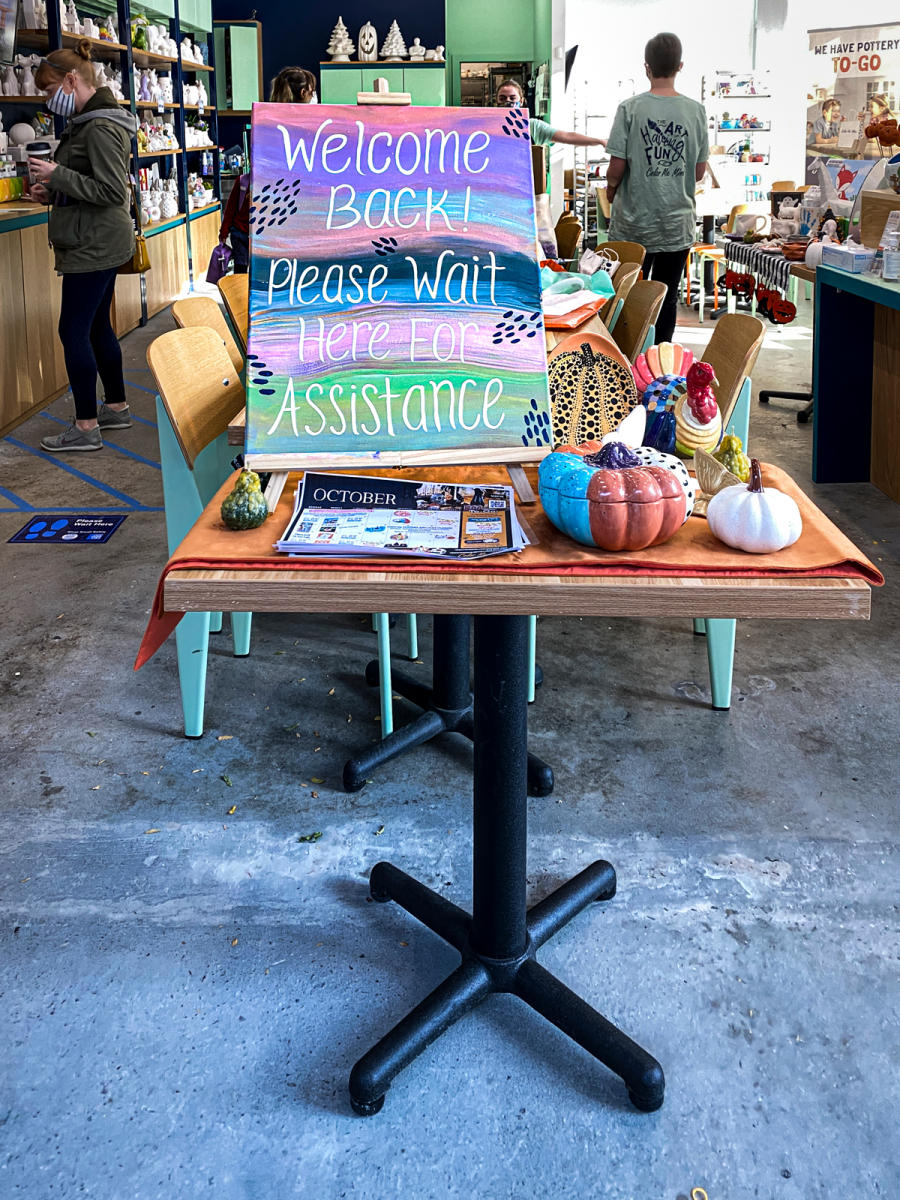 WE HAVE POTTERY
TO-GO
THE
ART
HAVING
FUN
Welcome
Back!
Please Wait
Here For
Assistance
OCTOBER
Please
Wait Here